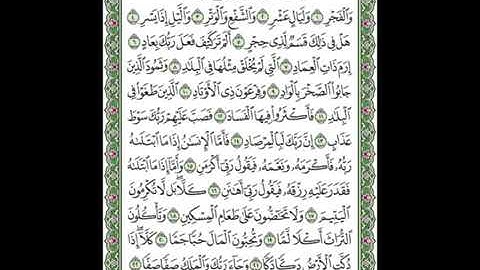 وَالْفَجْرِ ١ وَلَيَالٍ عَشْرٍ ٢ وَالشَّفْعِ وَالْوَتْرِ ٣ وَاللَّيْلِ إِذَا يَسْرِ ٤
هَلْ فِي ذَٰلِكَ قَسَمٌ لِّذِي حِجْرٍ ٥ أَلَمْ تَرَ كَيْفَ فَعَلَ رَبُّكَ بِعَادٍ ٦
إِرَمَ ذَاتِ الْعِمَادِ ٧ الَّتِي لَمْ يُخْلَقْ مِثْلُهَا فِي الْبِلَادِ ٨ وَثَمُودَ الَّذِينَ
جَابُوا الصَّخْرَ بِالْوَادِ ٩ وَفِرْعَوْنَ ذِي الْأَوْتَادِ ١٠ الَّذِينَ طَغَوْا فِي
الْبِلَادِ ١١ فَأَكْثَرُوا فِيهَا الْفَسَادَ ١٢ فَصَبَّ عَلَيْهِمْ رَبُّكَ سَوْطَ
عَذَابٍ ١٣ إِنَّ رَبَّكَ لَبِالْمِرْصَادِ ١٤ فَأَمَّا الْإِنسَانُ إِذَا مَا ابْتَلَاهُ
رَبُّهُ فَأَكْرَمَهُ وَنَعَّمَهُ فَيَقُولُ رَبِّي أَكْرَمَنِ ١٥ وَأَمَّا إِذَا مَا ابْتَلَاهُ
فَقَدَرَ عَلَيْهِ رِزْقَهُ فَيَقُولُ رَبِّي أَهَانَنِ ١٦ كَلَّا ۖ بَل لَّا تُكْرِمُونَ
الْيَتِيمَ ١٧ وَلَا تَحَاضُّونَ عَلَىٰ طَعَامِ الْمِسْكِينِ ١٨ وَتَأْكُلُونَ
التُّرَاثَ أَكْلًا لَّمًّا ١٩ وَتُحِبُّونَ الْمَالَ حُبًّا جَمًّا ٢٠ كَلَّا إِذَا
دُكَّتِ الْأَرْضُ دَكًّا دَكًّا ٢١ وَجَاءَ رَبُّكَ وَالْمَلَكُ صَفًّا صَفًّا ٢٢